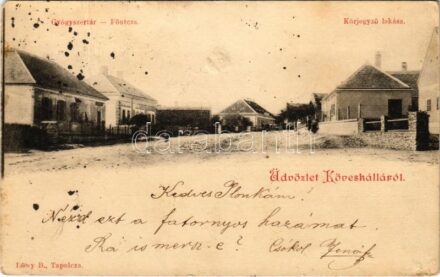 Gyógyszertár — Főutcza.
Körjegyző lakása.
darabanth
Üdvözlet Köveskálláról.
Kedves Ilonkám!
Nézd ezt a fatornyos hazámat.
Rá ismersz-e? Csókol
Löwy B., Tapolcza.